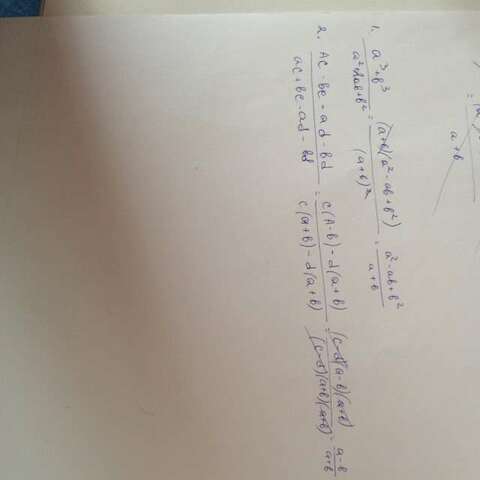 = (a
a+b
1. a³+b³ / a²+2ab+b² = (a+b)(a²-ab+b²) / (a+b)² = a²-ab+b² / a+b
2. Ac-bc-ad-bd / ac+bc-ad-bd = c(A-b)-d(a+b) / c(a+b)-d(a+b) = (c-d)(a-b)(a+b) / (c-d)(a+b)(a+b) = a-b / a+b